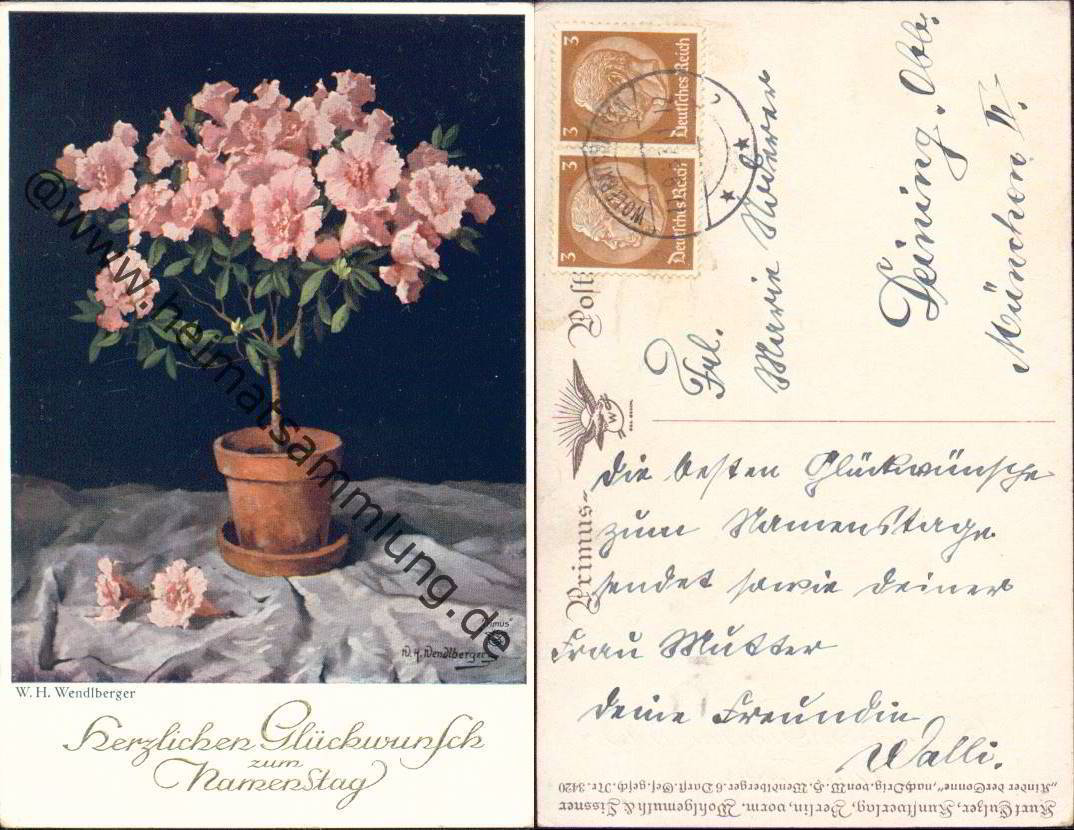 @www.heimatsammlung.de
"Primus"
W. H. Wendlberger
W. H. Wendlberger
Herzlichen Glückwunsch
zum
Namenstag
3
3
Deutsches Reich
3
3
Deutsches Reich
WOLFRATS
Frl.
Marie
Deining. Obb.
München II.
Primus-Post
W G
die besten Glückwünsche
zum Namenstage
sendet sowie deiner
Frau Mutter
deine Freundin
Walli.
Kurt Eulzer, Kunstverlag, Berlin, vorm. Wohlgemuth & Lissner
"Kinder der Sonne", nach Orig. von W. H. Wendlberger. 6 Darst. Ges. gesch. Nr. 3420